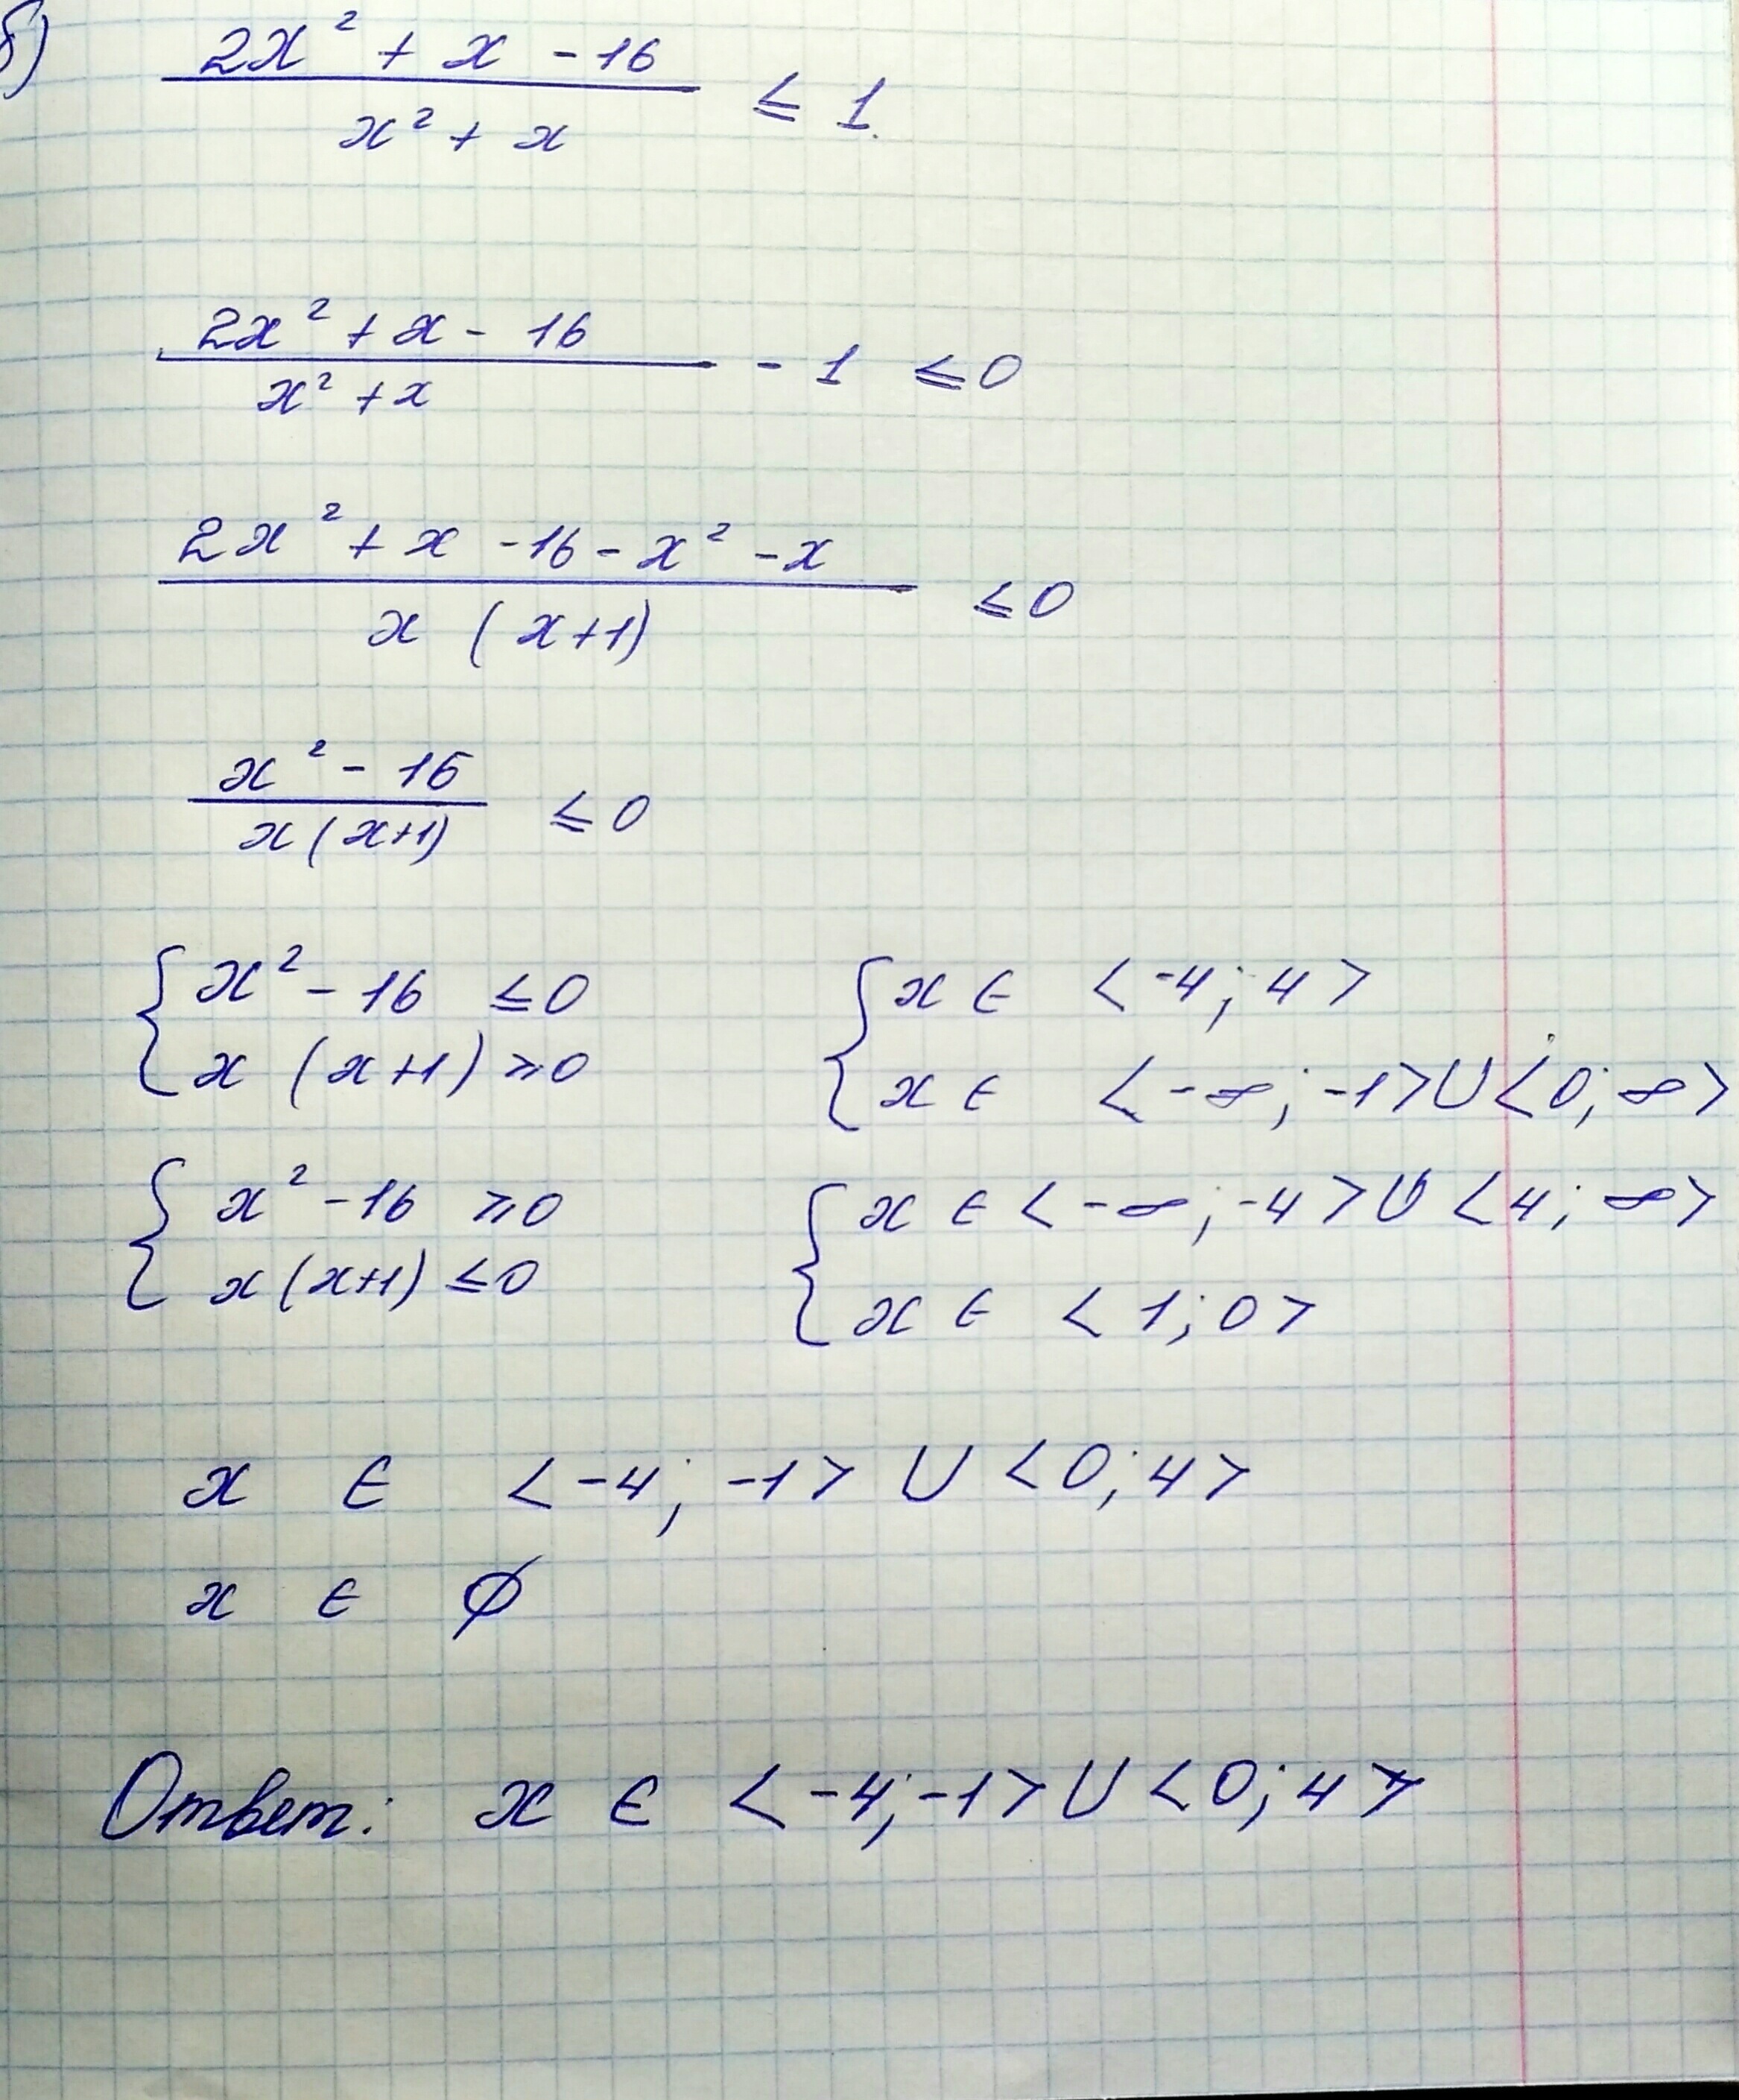 б) (2x² + x - 16)/(x² + x) ≤ 1.
(2x² + x - 16)/(x² + x) - 1 ≤ 0
(2x² + x - 16 - x² - x)/(x (x+1)) ≤ 0
(x² - 16)/(x(x+1)) ≤ 0
{ x² - 16 ≤ 0   { x ∈ <-4; 4>
x (x+1) ≥ 0   x ∈ <-∞; -1> ∪ <0; ∞>
{ x² - 16 ≥ 0   { x ∈ <-∞; -4> ∪ <4; ∞>
x(x+1) ≤ 0   x ∈ <1; 0>
x ∈ <-4; -1> ∪ <0; 4>
x ∈ ∅
Ответ: x ∈ <-4; -1> ∪ <0; 4>